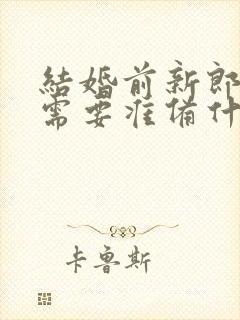 結婚前新郎
需要准備什
卡魯斯